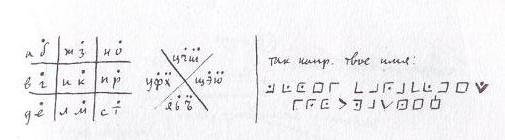 а б ж з н о
в г и к п р
д е л м с т
ц ч ш
у ф х щ э ю
я ь ъ
так напр. твое имя: